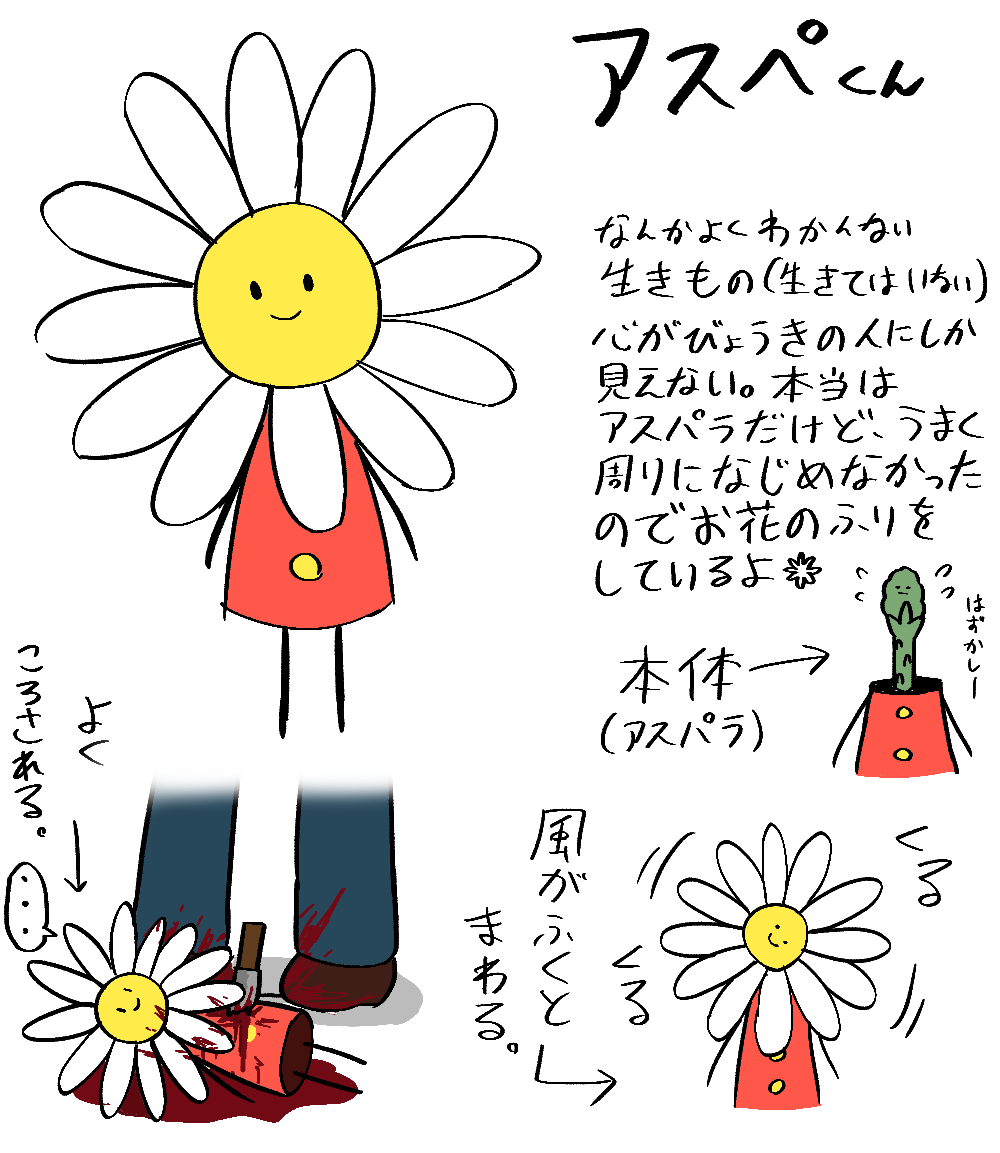 アスペくん
なんかよくわかんない
生きもの(生きてはいない)
心がびょうきの人にしか
見えない。本当は
アスパラだけど、うまく
周りになじめなかった
のでお花のふりを
しているよ
はずかしー
本体→
(アスパラ)
よく
ころされる。
...
風がふくと
まわる。
くる
くる